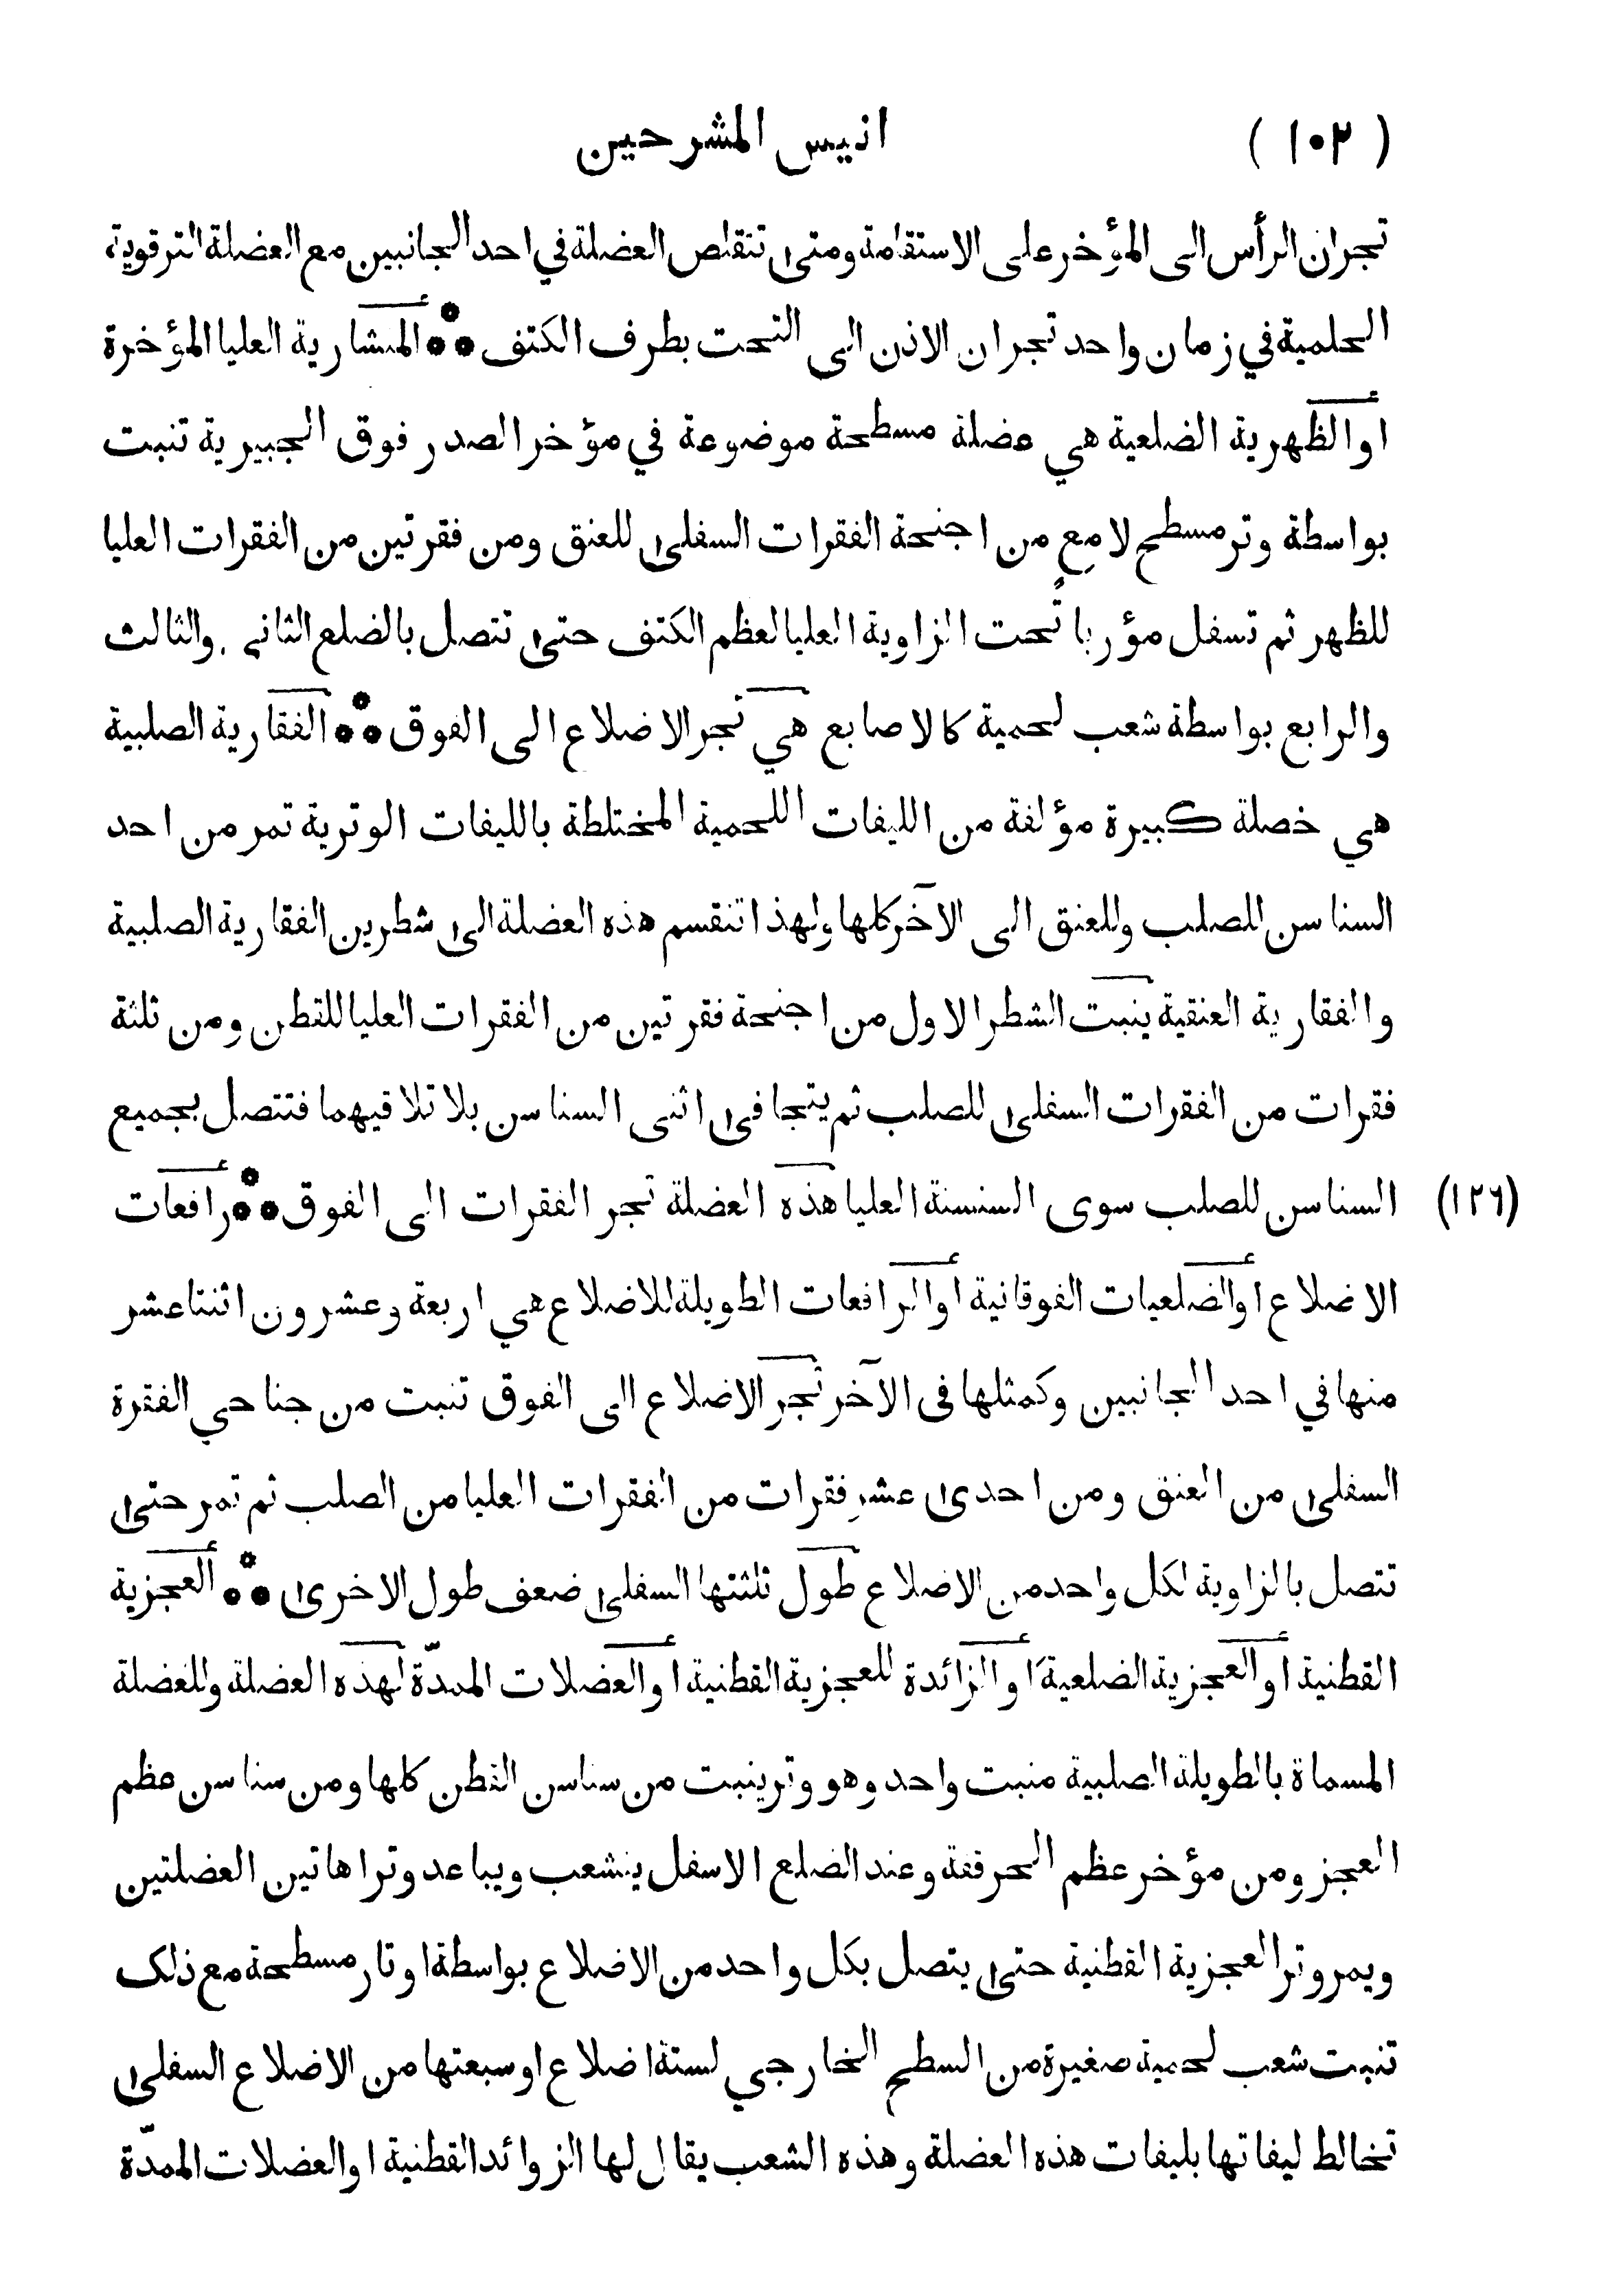 ( ١٠٢ ) انيس المشرحين
تجران الرأس الى المؤخر على الاستقامة ومتى تنقلص العضلة في احد الجانبين مع العضلة الترقوية
الحلمية في زمان واحد تجران الاذن الى التحت بطرف الكتف ** المنشارية العليا المؤخرة
او الظهرية الضلعية هي عضلة مسطحة موضوعة في مؤخر الصدر فوق الجبيرية تنبت
بواسطة وتر مسطح لامع من اجنحة الفقرات السفلى للعنق ومن فقرتين من الفقرات العليا
للظهر ثم تسفل مؤربا تحت الزاوية العليا لعظم الكتف حتى تتصل بالضلع الثاني والثالث
والرابع بواسطة شعب لحمية كالاصابع هي تجر الاضلاع الى الفوق ** الفقارية الصلبية
هي خصلة كبيرة مؤلفة من الليفات اللحمية المختلطة بالليفات الوترية تمر من احد
السناسن للصلب وللعنق الى الآخر كلها ولهذا تنقسم هذه العضلة الى شطرين الفقارية الصلبية
والفقارية العنقية ينبت الشطر الاول من اجنحة فقرتين من الفقرات العليا للقطن ومن ثلثة
فقرات من الفقرات السفلى للصلب ثم يتجافى اثنى السناسن بلا تلاقيهما فتتصل بجميع
(١٢٦) السناسن للصلب سوى السنسنة العليا هذه العضلة تجر الفقرات الى الفوق ** رافعات
الاضلاع او الضلعيات الفوقانية او الرافعات الطويلة للاضلاع هي اربعة وعشرون اثنتا عشر
منها في احد الجانبين وكمثلها في الآخر تجر الاضلاع الى الفوق تنبت من جناحي الفقرة
السفلى من العنق ومن احدى عشر فقرات من الفقرات العليا من الصلب ثم تمر حتى
تتصل بالزاوية لكل واحد من الاضلاع طول ثلثتها السفلى ضعف طول الاخرى ** العجزية
القطنية او العجزية الضلعية او الزائدة للعجزية القطنية او العضلات الممدّة لهذه العضلة وللعضلة
المسماة بالطويلة الصلبية منبت واحد وهو وتر ينبت من سناسن القطن كلها ومن سناسن عظم
العجز ومن مؤخر عظم الحرقفة وعند الضلع الاسفل ينشعب ويباعد وترا هاتين العضلتين
ويمر وتر العجزية القطنية حتى يتصل بكل واحد من الاضلاع بواسطة اوتار مسطحة مع ذلك
تنبت شعب لحمية صغيرة من السطح الخارجي لستة اضلاع او سبعتها من الاضلاع السفلى
تخالط ليفاتها بليفات هذه العضلة وهذه الشعب يقال لها الزوائد القطنية او العضلات الممدّة